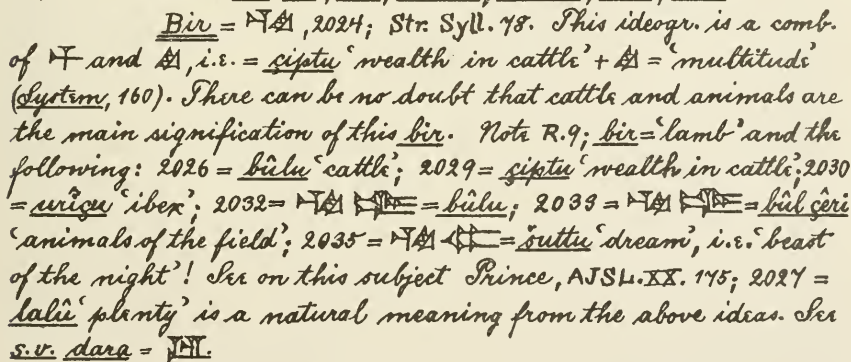 Bir = 𒈦𒀭, 2024; Str. Syll. 78. This ideogr. is a comb.
of 𒈦 and, i.e. = çiptu 'wealth in cattle' + = 'multitude'
(System, 160). There can be no doubt that cattle and animals are
the main signification of this bir. Note R.9; bir = 'lamb' and the
following: 2026 = bûlu 'cattle'; 2029 = çiptu 'wealth in cattle'; 2030
= urîçu 'ibex'; 2032 = = bûlu; 2033 = = bûl çêri
'animals of the field'; 2035 = = šuttu 'dream', i.e. 'beast
of the night'! See on this subject Prince, AJSL. XX. 175; 2027 =
lalû 'plenty' is a natural meaning from the above ideas. See
s.v. dara =